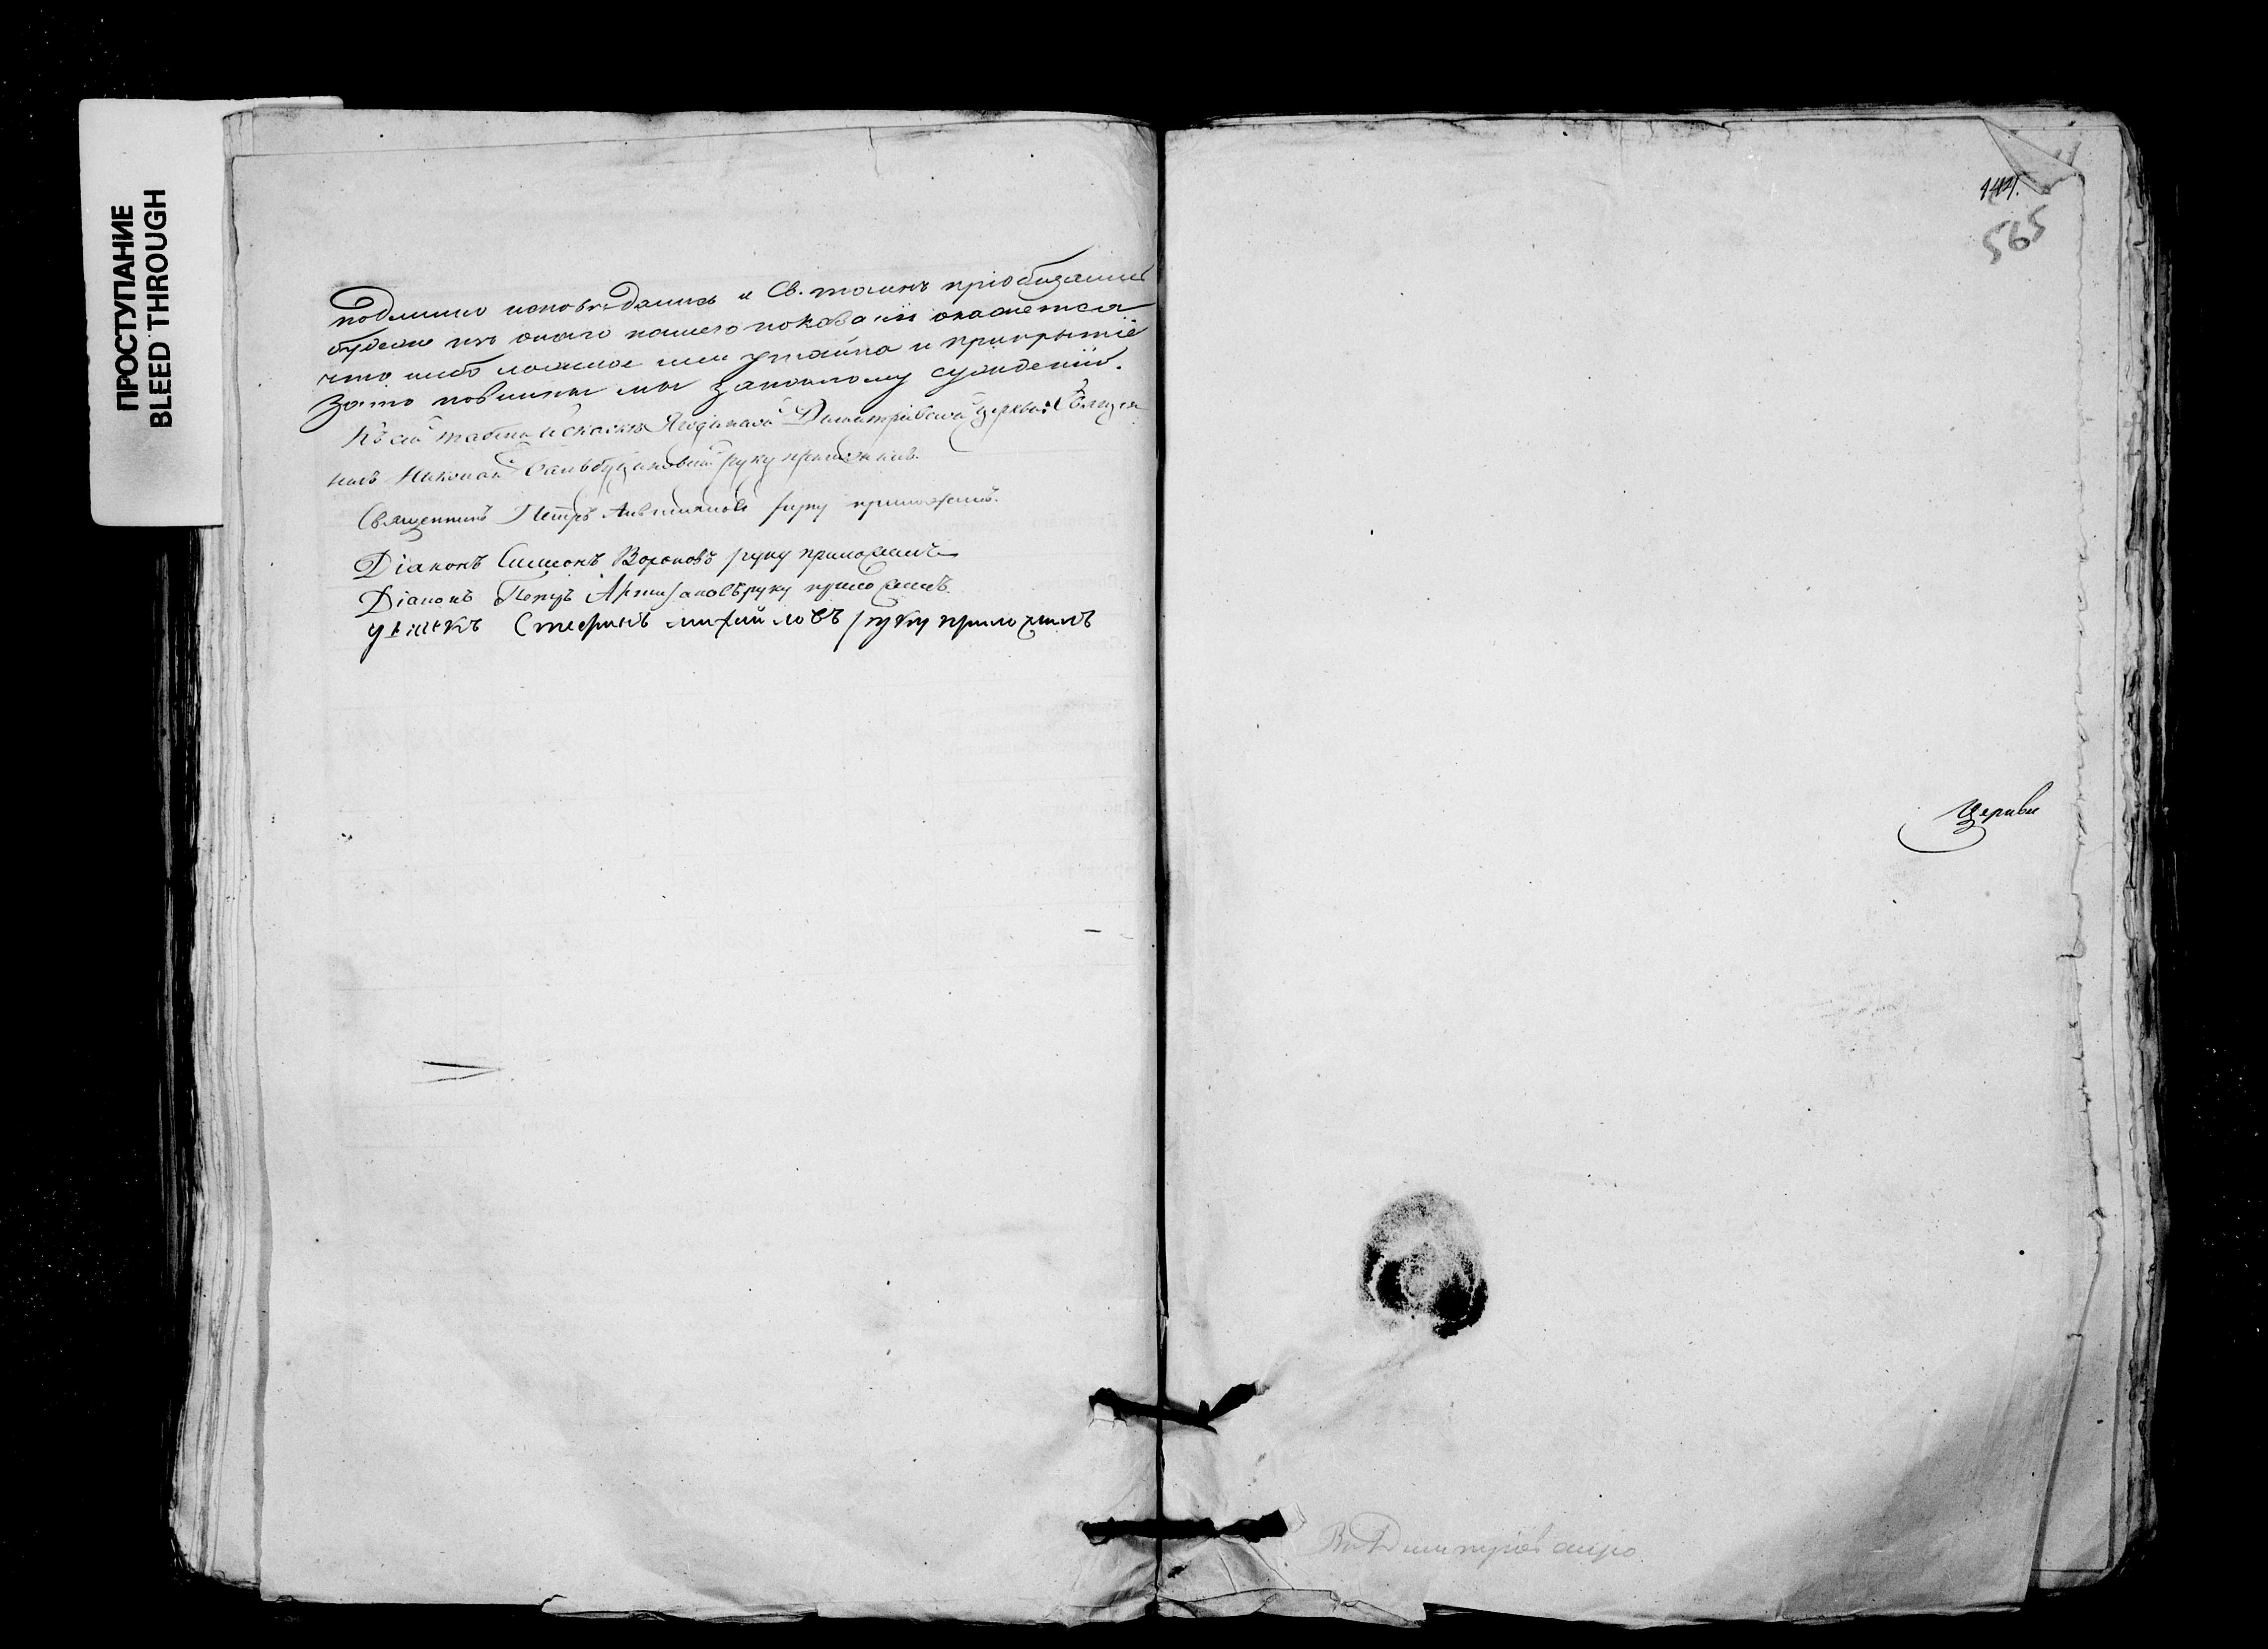 ПРОСТУПАНИЕ
BLEED THROUGH
подлинно исповѣдались и Св. таинъ пріобщались
будеже изъ онаго нашего показанія окажется
что либо ложное или утайка и прикрытіе
зато повинны мы законному сужденію.
Къ сей табели и сказкѣ Ягодинской Димитріевской церкви Священ
никъ Николай руку приложилъ.
Священникъ Петръ руку приложилъ.
Діаконъ Симеонъ Вороновъ руку приложилъ
Діаконъ Петръ руку приложилъ.
Стефанъ михайловъ руку приложилъ
565
Церкви